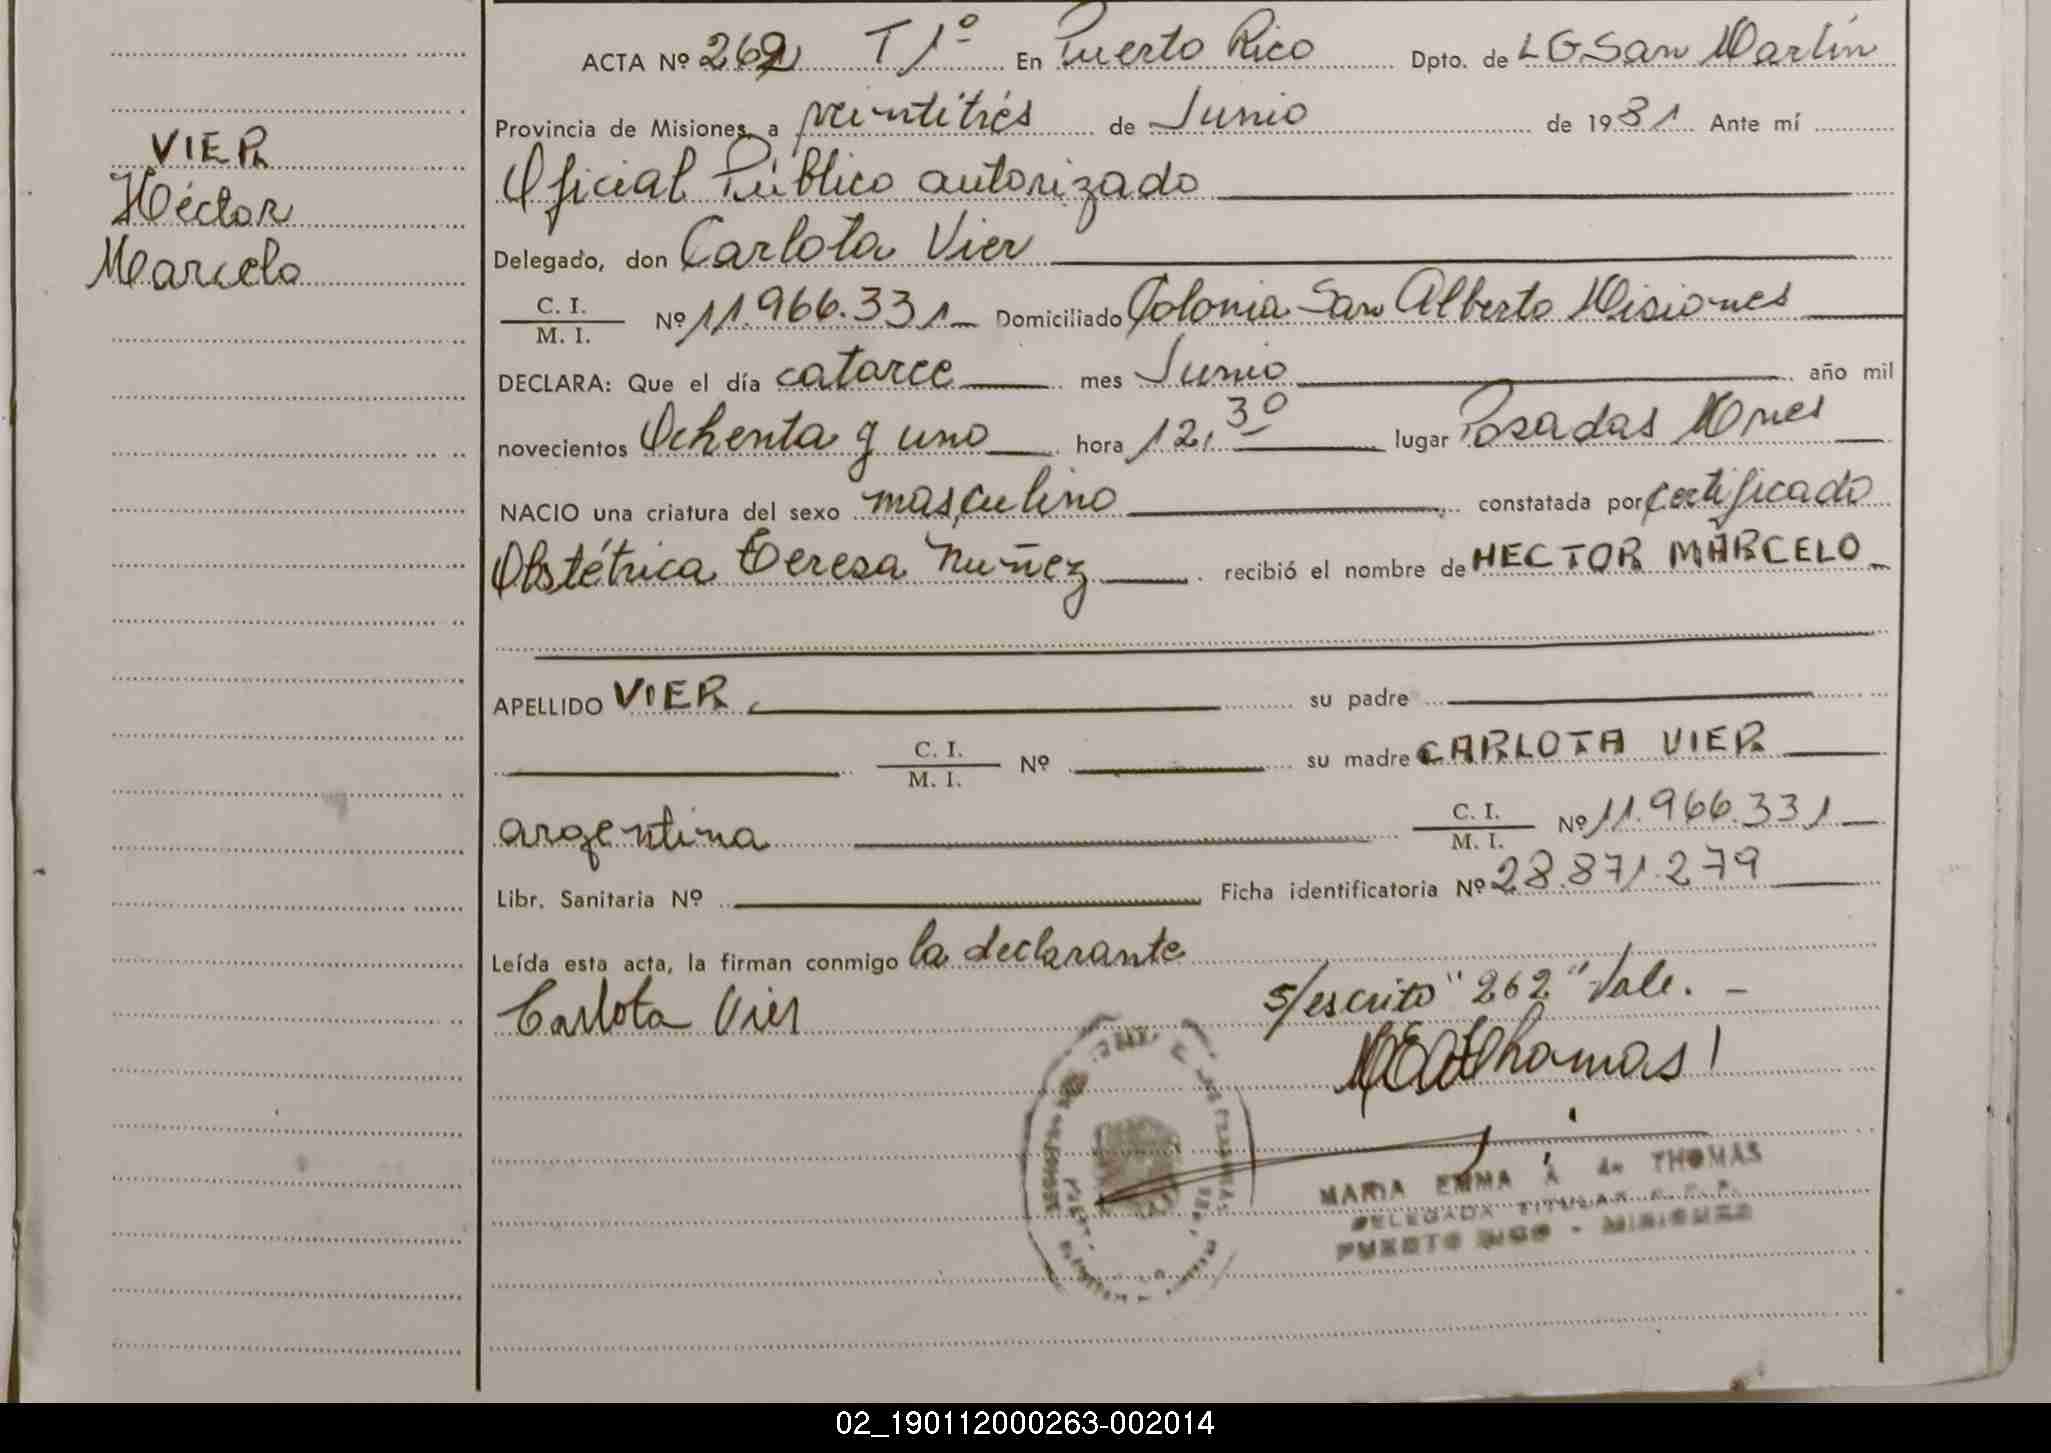 VIER
Héctor
Marcelo
ACTA Nº 262 T 1º En Puerto Rico Dpto. de LG San Martín
Provincia de Misiones, a veintitrés de Junio de 1981 Ante mí
Oficial Público autorizado
Delegado, don Carlota Vier
C. I.
M. I. Nº 11.966.331 Domiciliado Colonia San Alberto Misiones
DECLARA: Que el día catorce mes Junio año mil
novecientos Ochenta y uno hora 12,30 lugar Posadas Mnes
NACIO una criatura del sexo masculino constatada por certificado
Obstétrica Teresa Nuñez recibió el nombre de HECTOR MARCELO
APELLIDO VIER su padre
C. I.
M. I. Nº su madre CARLOTA VIER
argentina C. I.
M. I. Nº 11.966.331
Libr. Sanitaria Nº Ficha identificatoria Nº 28.871.279
Leída esta acta, la firman conmigo la declarante
Carlota Vier s/escrito "262" Vale. -
Thomas
MARIA EMMA A de THOMAS
DELEGADA TITULAR
PUERTO RICO - MISIONES
02_190112000263-002014